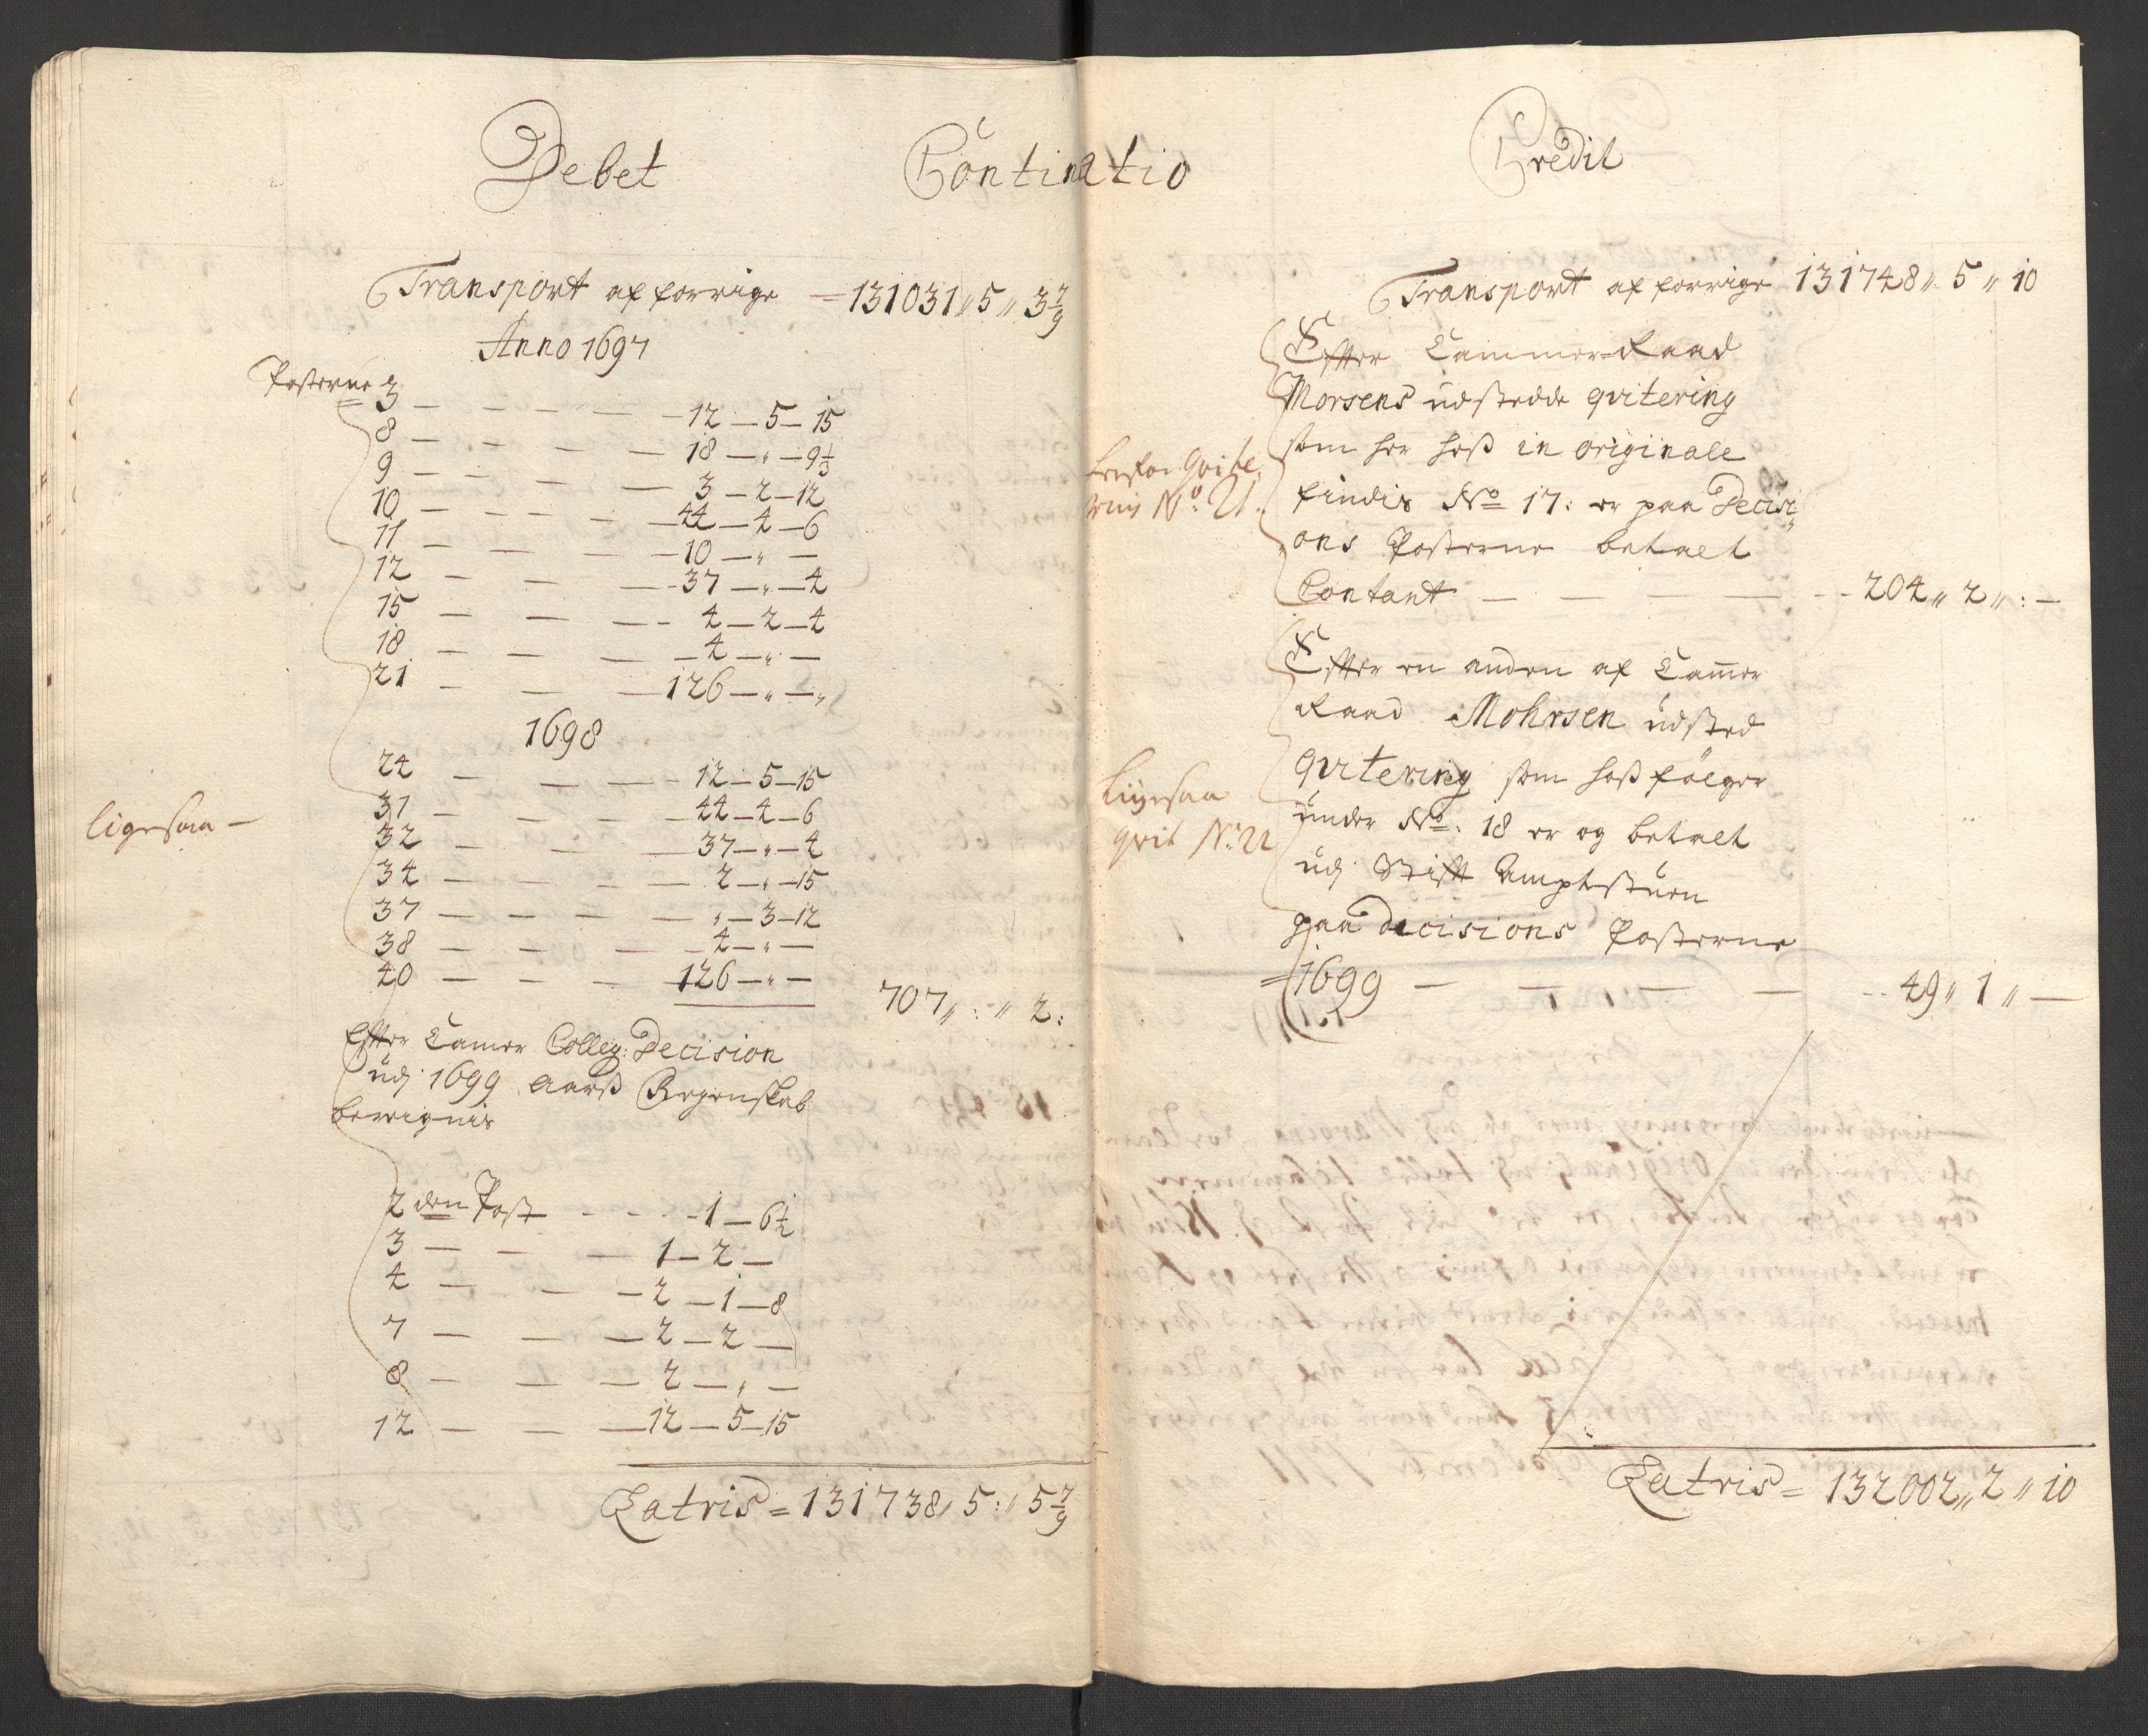 Debet Continatio
Transport af forrige = 131031 〃 5 〃 3 7/9
Anno 1697
Posterne 3 — — — — — 12 — 5 — 15
8 — — — — — 18 — 〃 — 9 1/3
9 — — — — — 3 — 2 — 12
10 — — — — — 44 — 4 — 6
11 — — — — — 10 — 〃 —
12 — — — 37 — 〃 — 4
15 — — — 4 — 2 — 4
18 — — — 4 — 〃 —
21 — — — 126 — 〃 — 〃
1698
24 — — — 12 — 5 — 15
31 — — — — 44 — 4 — 6
ligesaa —
32 — — — 37 — 〃 — 4
34 — — — — 2 — 〃 — 15
37 — — — — 〃 — 3 — 12
38 — — — 4 — 〃 —
40 — — — 126 — 〃 — 707 〃 : 〃 2 :
Efter Camer Colleg: Decision
udj 1699 Aarß Regenskab
bereignis
2 den Post - - - 1 — 6 1/2
3 — — — 1 — 2 —
4 — — — 2 — 1 — 8
7 — — — 2 — 2 —
8 — — — 2 — 〃 —
12 — — — 12 — 5 — 15
Latris = 131738 〃 5 : 〃 5 7/9
Credit
Transport af forrige 131748 〃 5 〃 10
Efter Cammer-Raad
Morsens udstedde qvitering
som her hoß in originale
findis No 17: er paa Decisi
ons Posterne betalt
Contant — — — — - - 204 〃 2 〃 : —
No: 21.
Efter en anden af Camer
Raad Mohrsen udsted
qvitering som hoß følger
under No: 18 er og betalt
udj Stift Amptstuen
paa Decisions Posterne
1699 — — — — - - 49 〃 1 〃 —
ligesaa
qvit No: 22
Latris = 132002 〃 2 〃 10